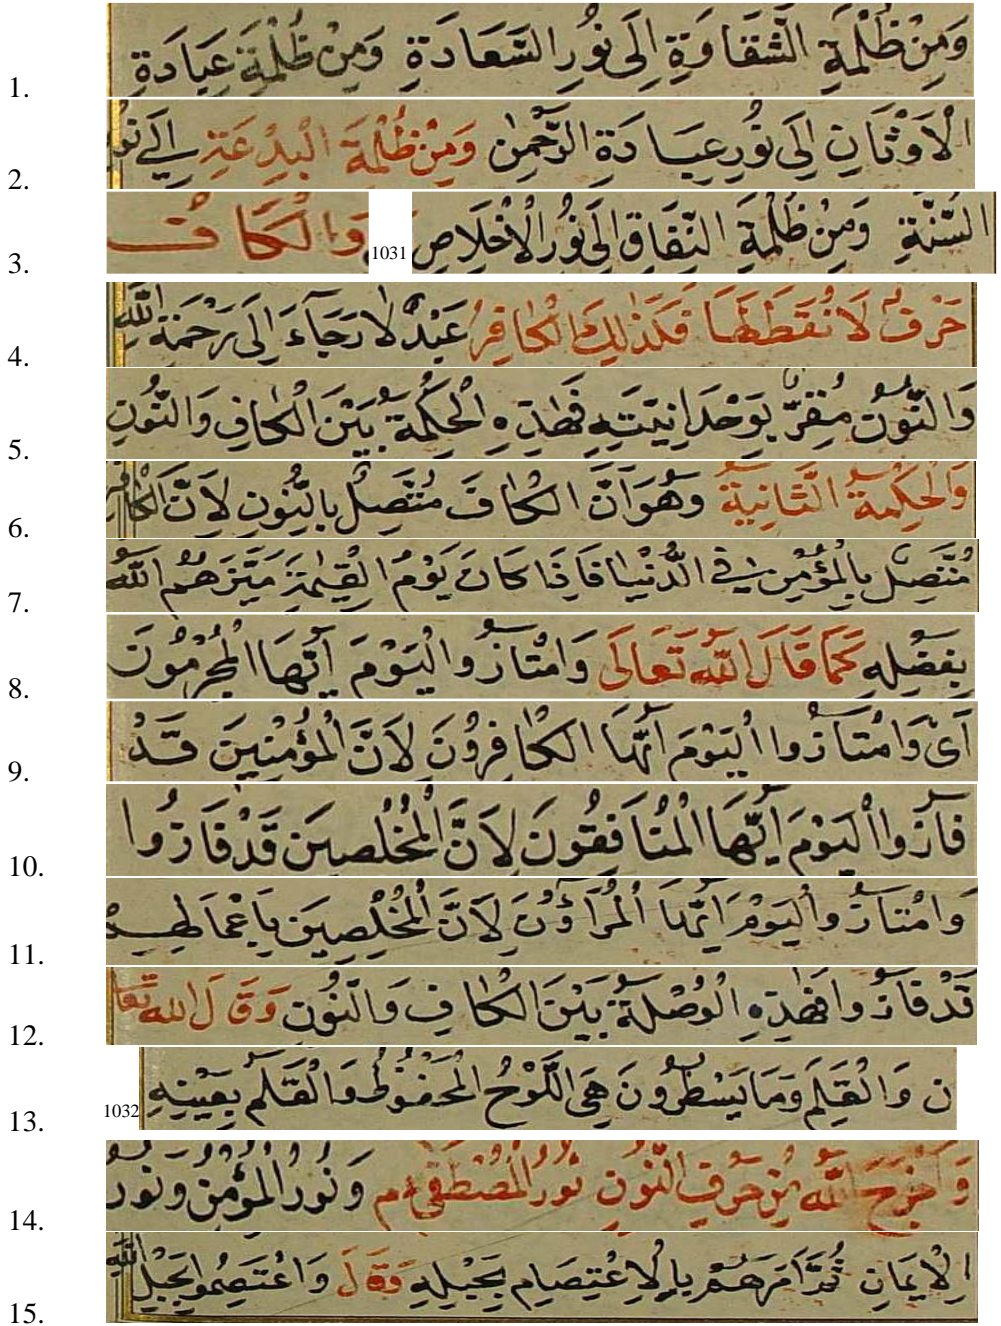 1. وَمِنْ ظُلْمَةِ الشَّقَاوَةِ اِلَى نُورِ السَّعَادَةِ وَمِنْ ظُلْمَةِ عِبَادَةِ
2. الْاَوْثَانِ اِلَى نُورِ عِبَادَةِ الرَّحْمٰنِ وَمِنْ ظُلْمَةِ الْبِدْعَةِ اِلَى نُورِ
3. السُّنَّةِ وَمِنْ ظُلْمَةِ النِّفَاقِ اِلَى نُورِ الْاِخْلَاصِ 1031 وَالْكَافُ
4. حَرْفٌ لَا نُقَطَ لَهَا فَكَذٰلِكَ الْكَافِرُ عَبْدٌ لَا رَجَاءَ اِلَى رَحْمَةِ اللّٰهِ
5. وَالنُّونُ مُقِرٌّ بِوَحْدَانِيَّتِهِ فَهٰذِهِ الْحِكْمَةُ بَيْنَ الْكَافِ وَالنُّونِ
6. وَالْحِكْمَةُ الثَّانِيَةُ وَهُوَ اَنَّ الْكَافَ مُتَّصِلٌ بِالنُّونِ لِاَنَّ الْكَافِرَ
7. مُتَّصِلٌ بِالْمُؤْمِنِ فِي الدُّنْيَا فَاِذَا كَانَ يَوْمُ الْقِيٰمَةِ مَيَّزَهُمُ اللّٰهُ
8. بِفَضْلِهِ كَمَا قَالَ اللّٰهُ تَعَالَى وَامْتَازُوا الْيَوْمَ اَيُّهَا الْمُجْرِمُونَ
9. اَىْ وَامْتَازُوا الْيَوْمَ اَيُّهَا الْكَافِرُونَ لِاَنَّ الْمُؤْمِنِينَ قَدْ
10. فَازُوا الْيَوْمَ اَيُّهَا الْمُنَافِقُونَ لِاَنَّ الْمُخْلِصِينَ قَدْ فَازُوا
11. وَامْتَازُوا الْيَوْمَ اَيُّهَا الْمُرَاؤُنَ لِاَنَّ الْمُخْلِصِينَ بِاَعْمَالِهِمْ
12. قَدْ فَازُوا فَهٰذِهِ الْوُصْلَةُ بَيْنَ الْكَافِ وَالنُّونِ وَقَالَ اللّٰه تعا
13. ن وَالْقَلَمِ وَمَا يَسْطُرُونَ هِىَ اللَّوْحُ الْمَحْفُوظُ وَالْقَلَمُ بِعَيْنِهِ 1032
14. وَاَخْرَجَ اللّٰهُ مِنْ حَرْفِ النُّونِ نُورُ الْمُصْطَفَى م وَنُورُ الْمُؤْمِنِ وَنُورُ
15. الْاِيمَانِ ثُمَّ اَمَرَهُمْ بِالْاِعْتِصَامِ بِحَبْلِهِ فَقَالَ وَاعْتَصِمُوا بِحَبْلِ اللّٰهِ